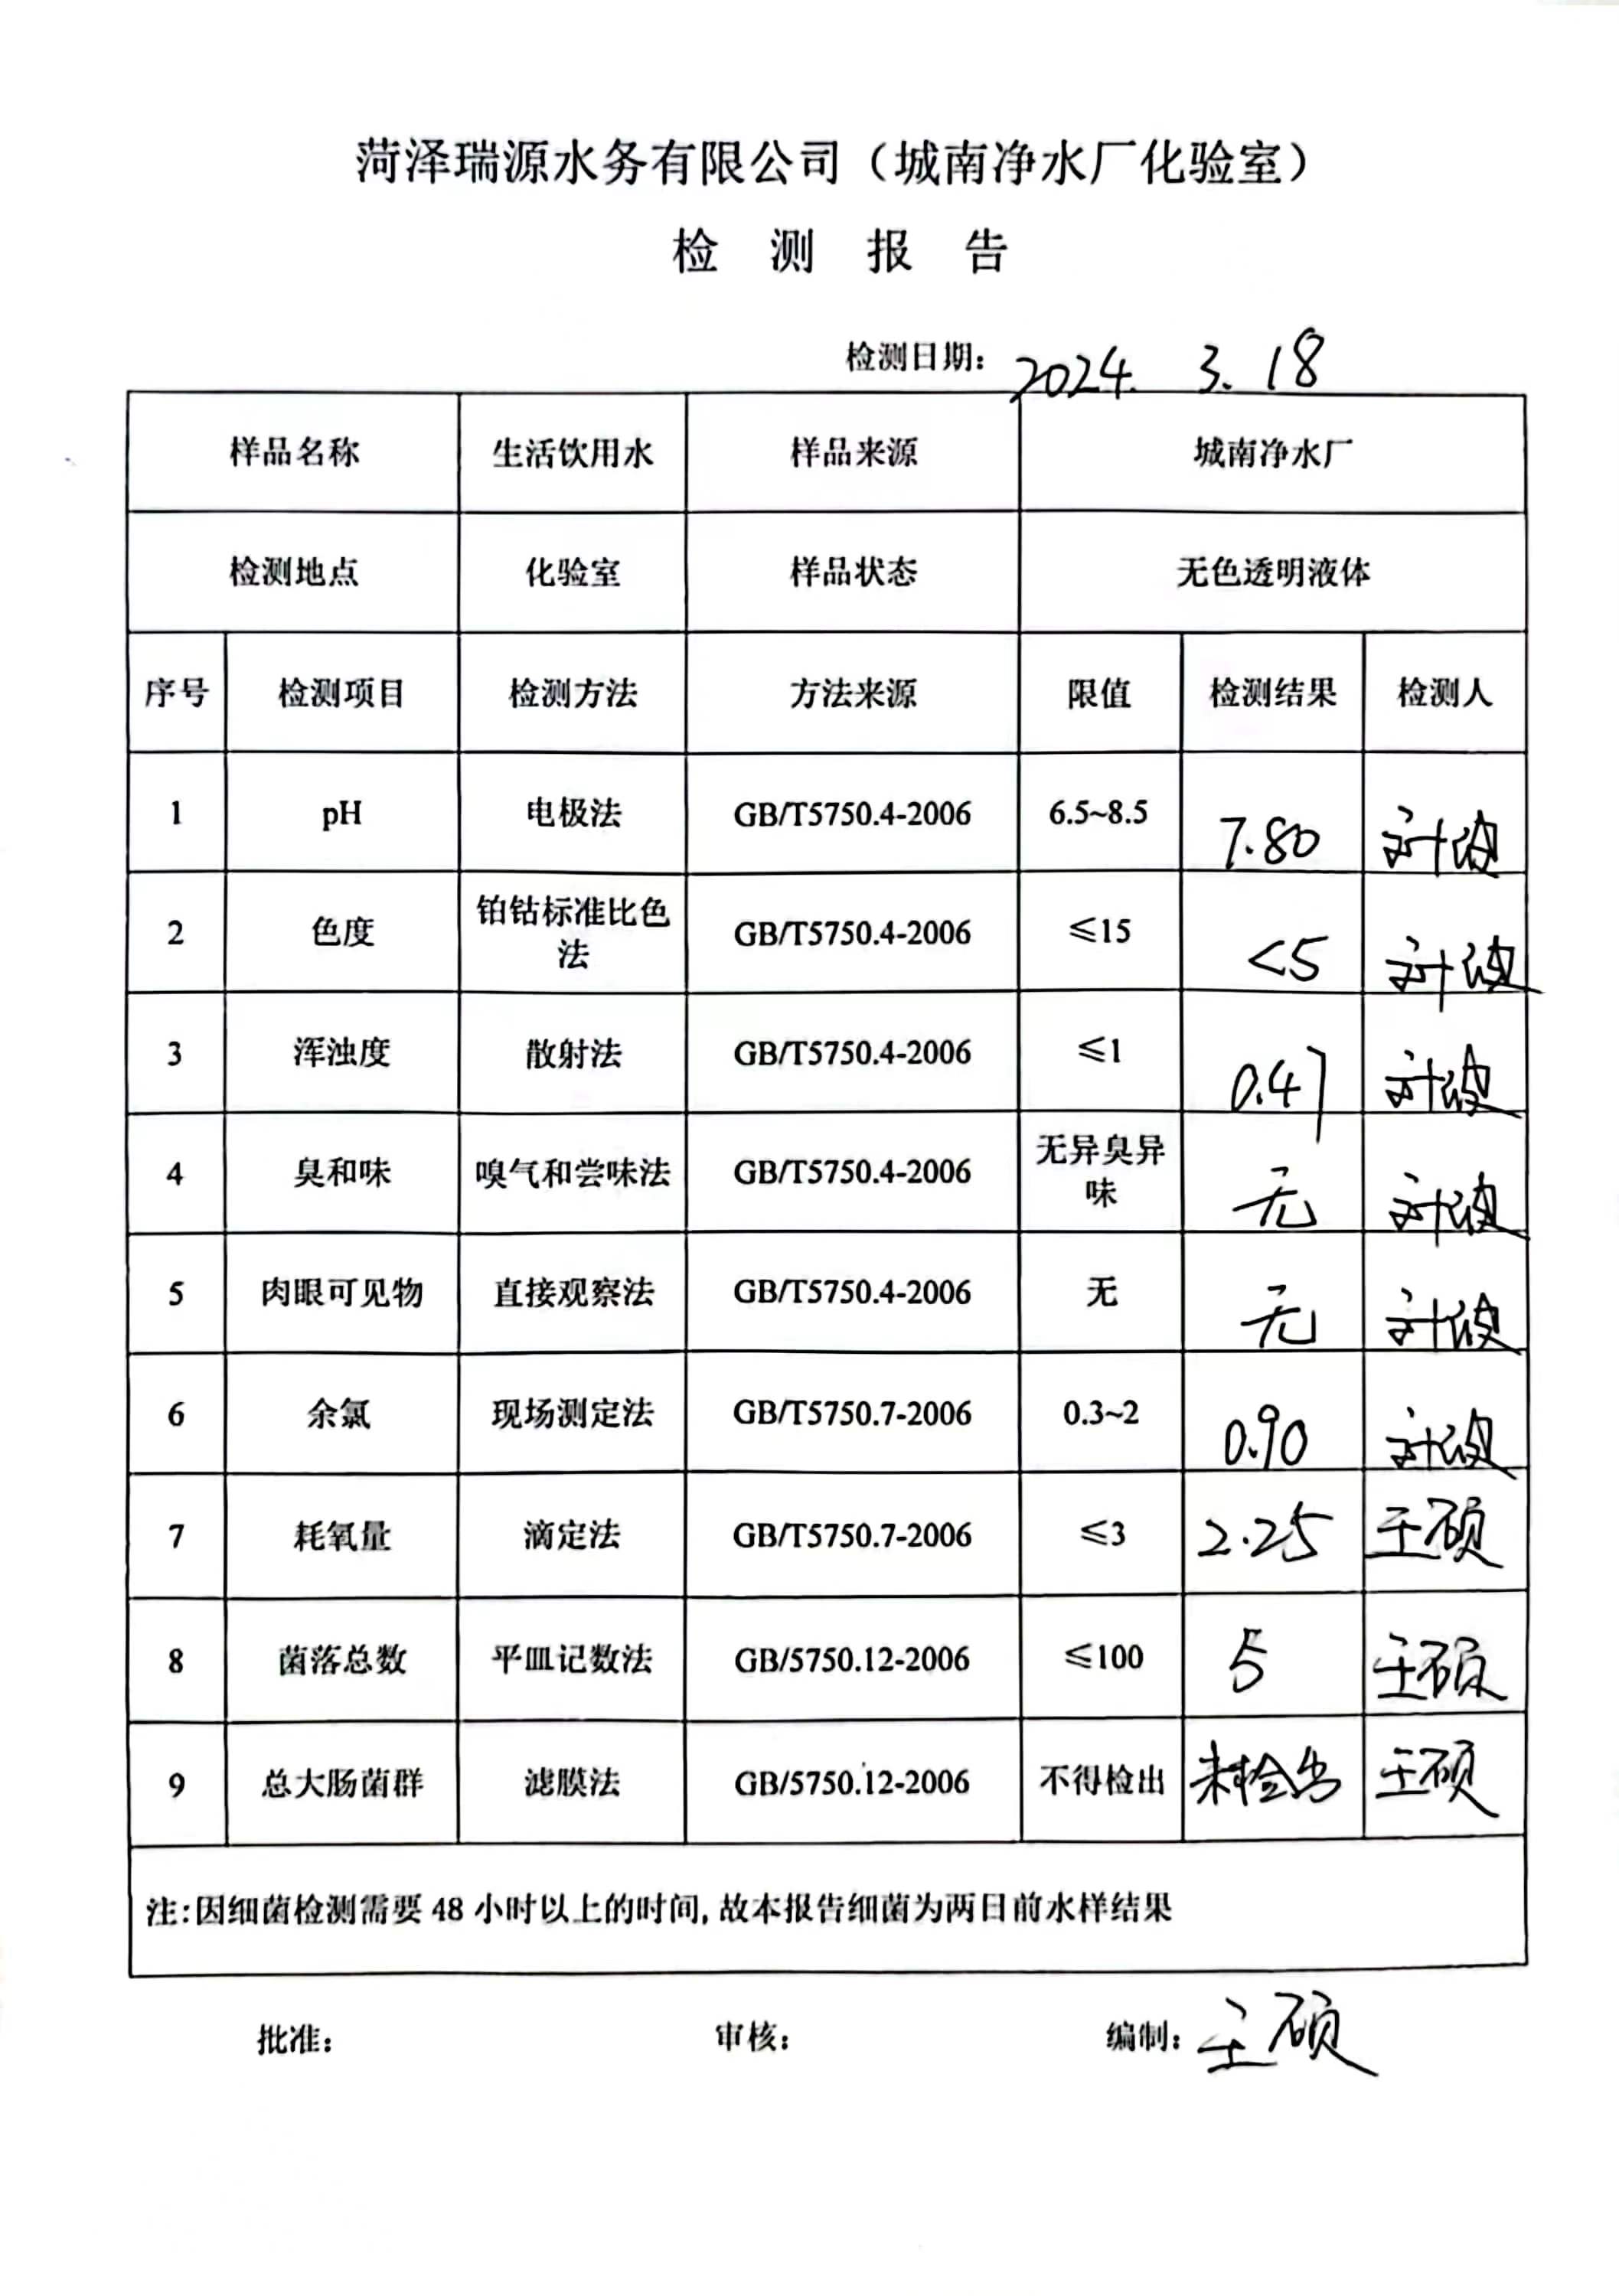 菏泽瑞源水务有限公司（城南净水厂化验室）
检 测 报 告
检测日期： 2024. 3. 18
样品名称 生活饮用水 样品来源 城南净水厂
检测地点 化验室 样品状态 无色透明液体
序号 检测项目 检测方法 方法来源 限值 检测结果 检测人
1 pH 电极法 GB/T5750.4-2006 6.5~8.5 7.80
2 色度 铂钴标准比色法 GB/T5750.4-2006 ≤15 <5
3 浑浊度 散射法 GB/T5750.4-2006 ≤1 0.47
4 臭和味 嗅气和尝味法 GB/T5750.4-2006 无异臭异味 无
5 肉眼可见物 直接观察法 GB/T5750.4-2006 无 无
6 余氯 现场测定法 GB/T5750.7-2006 0.3~2 0.90
7 耗氧量 滴定法 GB/T5750.7-2006 ≤3 2.25 王硕
8 菌落总数 平皿记数法 GB/5750.12-2006 ≤100 5 王硕
9 总大肠菌群 滤膜法 GB/5750.12-2006 不得检出 未检出 王硕
注：因细菌检测需要 48 小时以上的时间，故本报告细菌为两日前水样结果
批准： 审核： 编制：王硕